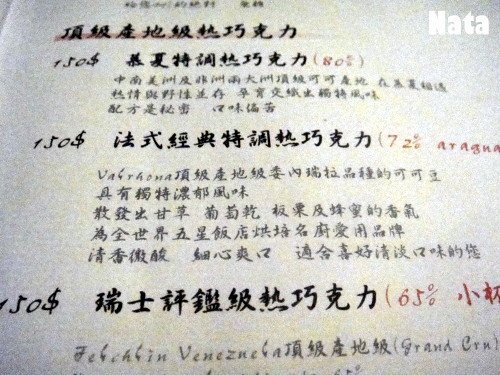 Nata
頂級產地級熱巧克力
150$ 慕夏特調熱巧克力(80%)
中南美洲及非洲兩大洲頂級可可產地 在慕夏相遇
熱情與野性並存 孕育交織出獨特風味
配方是秘密 口味偏苦
150$ 法式經典特調熱巧克力(72% aragua
Valrhona頂級產地級委內瑞拉品種的可可豆
具有獨特濃郁風味
散發出甘草 葡萄乾 板栗及蜂蜜的香氣
為全世界五星飯店烘培名廚愛用品牌
清香微酸 細心爽口 適合喜好清淡口味的您
150$ 瑞士評鑑級熱巧克力(65% 小杯
Felchlin Venezuela頂級產地級(Grand Cru)